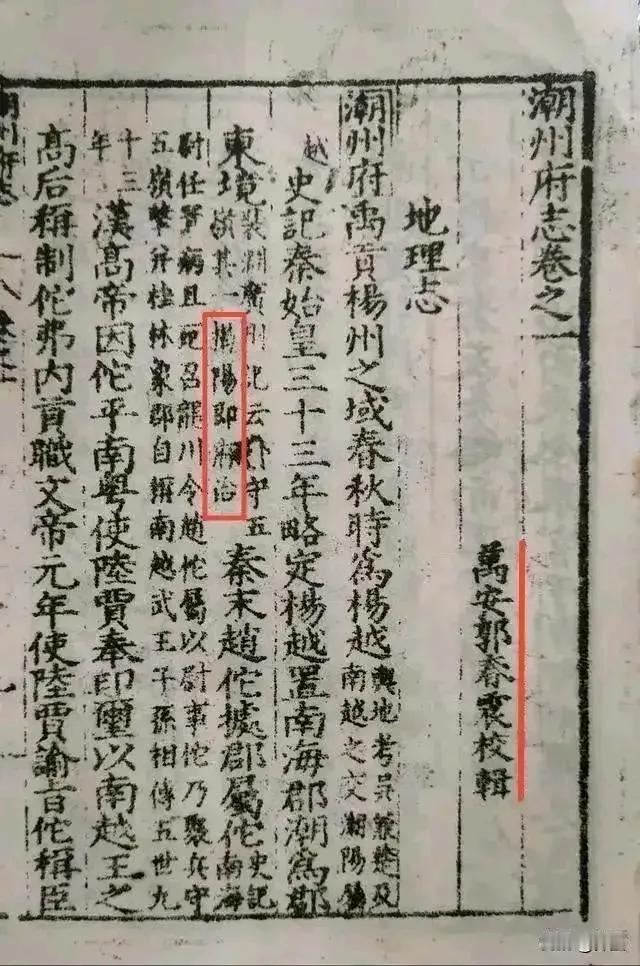 潮州府志卷之一
萬安郭春震校輯
地理志
潮州府禹貢楊州之域春秋時爲楊越輿地考吳楚及南越之交潮陽屬
越史記秦始皇三十三年略定楊越置南海郡潮爲郡
東境裴淵廣州記云守五嶺其一揭陽即府治秦末趙佗據郡屬佗史記南海
尉任囂病且死召龍川令趙佗屬以尉事佗乃聚兵守
五嶺擊并桂林象郡自稱南越武王子孫相傳五世九
十三年漢高帝因佗平南粤使陸賈奉印璽以南越王之
高后稱制佗弗内貢職文帝元年使陸賈諭旨佗稱臣
潮州府志